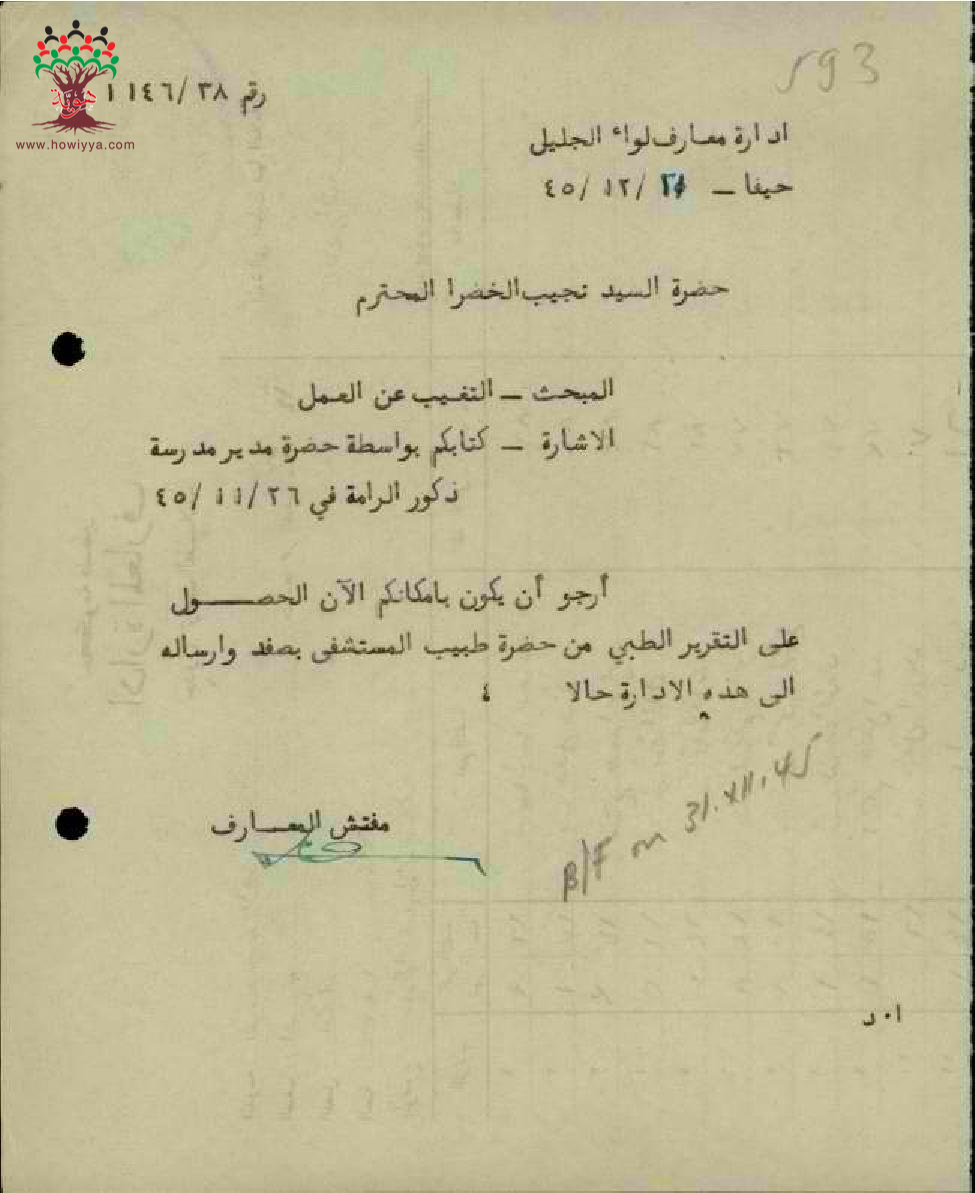 593
هوية
www.howiyya.com
رقم ٣٨/ ١١٤٦
ادارة معارف لواء الجليل
حيفا ــ ٢١/ ١٢/ ٤٥
حضرة السيد نجيب الخضرا المحترم
المبحث ــ التغيب عن العمل
الاشارة ــ كتابكم بواسطة حضرة مدير مدرسة
ذكور الرامة في ٢٦/ ١١/ ٤٥
أرجو أن يكون بامكانكم الآن الحصـــول
على التقرير الطبي من حضرة طبيب المستشفى بصفد وارساله
الى هذه الادارة حالا ٤
B/F on 31.XII.45
مفتش المعـــارف
ا٠ د